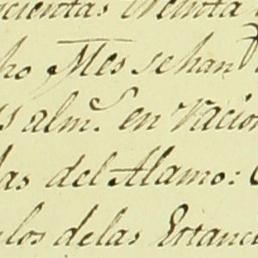 cientas treinta
ho Mes se han
alm.º en racion
las del Alamo:
ulos de las Estanci